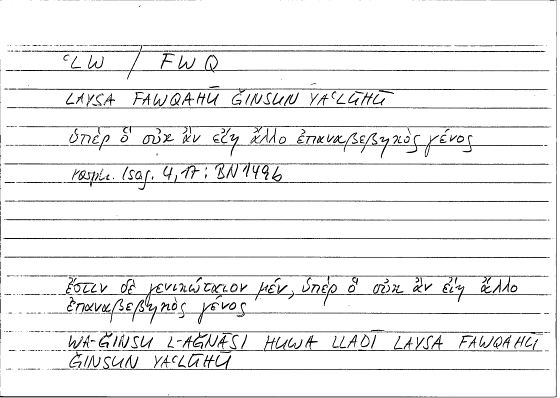 ᶜLW / FWQ
LAYSA FAWQAHŪ ǦINSUN YAᶜLŪHŪ
ὑπὲρ ὃ οὐκ ἂν εἴη ἄλλο ἐπαναβεβηκὸς γένος
Porph. Isag. 4,17: BN149b
ἔστιν δὲ γενικώτατον μέν, ὑπὲρ ὃ οὐκ ἂν εἴη ἄλλο
ἐπαναβεβηκὸς γένος
WA-ǦINSU L-AǦNĀSI HUWA LLAḎĪ LAYSA FAWQAHŪ
ǦINSUN YAᶜLŪHŪ